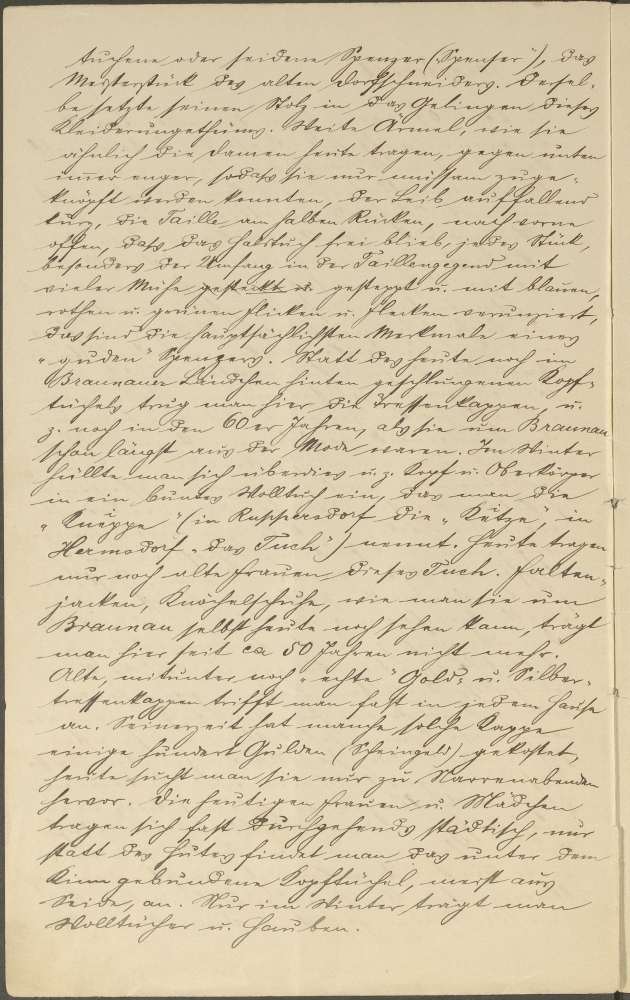 tuchene oder seidene Spenzer („Spenser"), das
Meisterstück des alten Dorfschneiders. Dersel-
be setzte seinen Stolz in das Gelingen dieses
Kleiderungethüms. Weite Ärmel, wie sie
ähnlich die Damen heute tragen, gegen unten
immer enger, sodass sie nur mühsam zuge-
knöpft werden konnten, der Leib auffallend
kurz, die Taille am halben Rücken, nach vorne
offen, dass das Halstuch frei blieb, jedes Stück,
besonders der Umfang in der Taillengegend mit
vieler Mühe gesteckt u. gesteppt u. mit blauen,
rothen u. grünen Flicken u. Flecken verunziert,
das sind die hauptsächlichsten Merkmale eines
„guden" Spenzers. Statt des heute noch im
Braunauer Ländchen hinten geschlungenen Kopf-
tüchels trug man hier die Tressenkappen, u.
z. noch in den 60er Jahren, als sie um Braunau
schon längst aus der Mode waren. Im Winter
hüllte man sich überdies u. z. Kopf u. Oberkörper
in ein buntes Wolltuch ein, das man die
„Kneppe" (in Ruppersdorf die „Kitze", in
Hermsdorf „das Tuch") nennt. Heute tragen
nur noch alte Frauen dieses Tuch. Falten-
jacken, Knöchelschuhe, wie man sie um
Braunau selbst heute noch sehen kann, trägt
man hier seit ca 50 Jahren nicht mehr.
Alte, mitunter noch „echte" Gold- u. Silber-
tressenkappen trifft man fast in jedem Hause
an. Seinerzeit hat manche solche Kappe
einige hundert Gulden (Scheingeld) gekostet,
heute sucht man sie nur zu Narrenabenden
hervor. Die heutigen Frauen u. Mädchen
tragen sich fast durchgehends städtisch, nur
statt des Hutes findet man das unter dem
Kinn gebundene Kopftüchel, meist aus
Seide, an. Nur im Winter trägt man
Wolltücher u. Hauben.